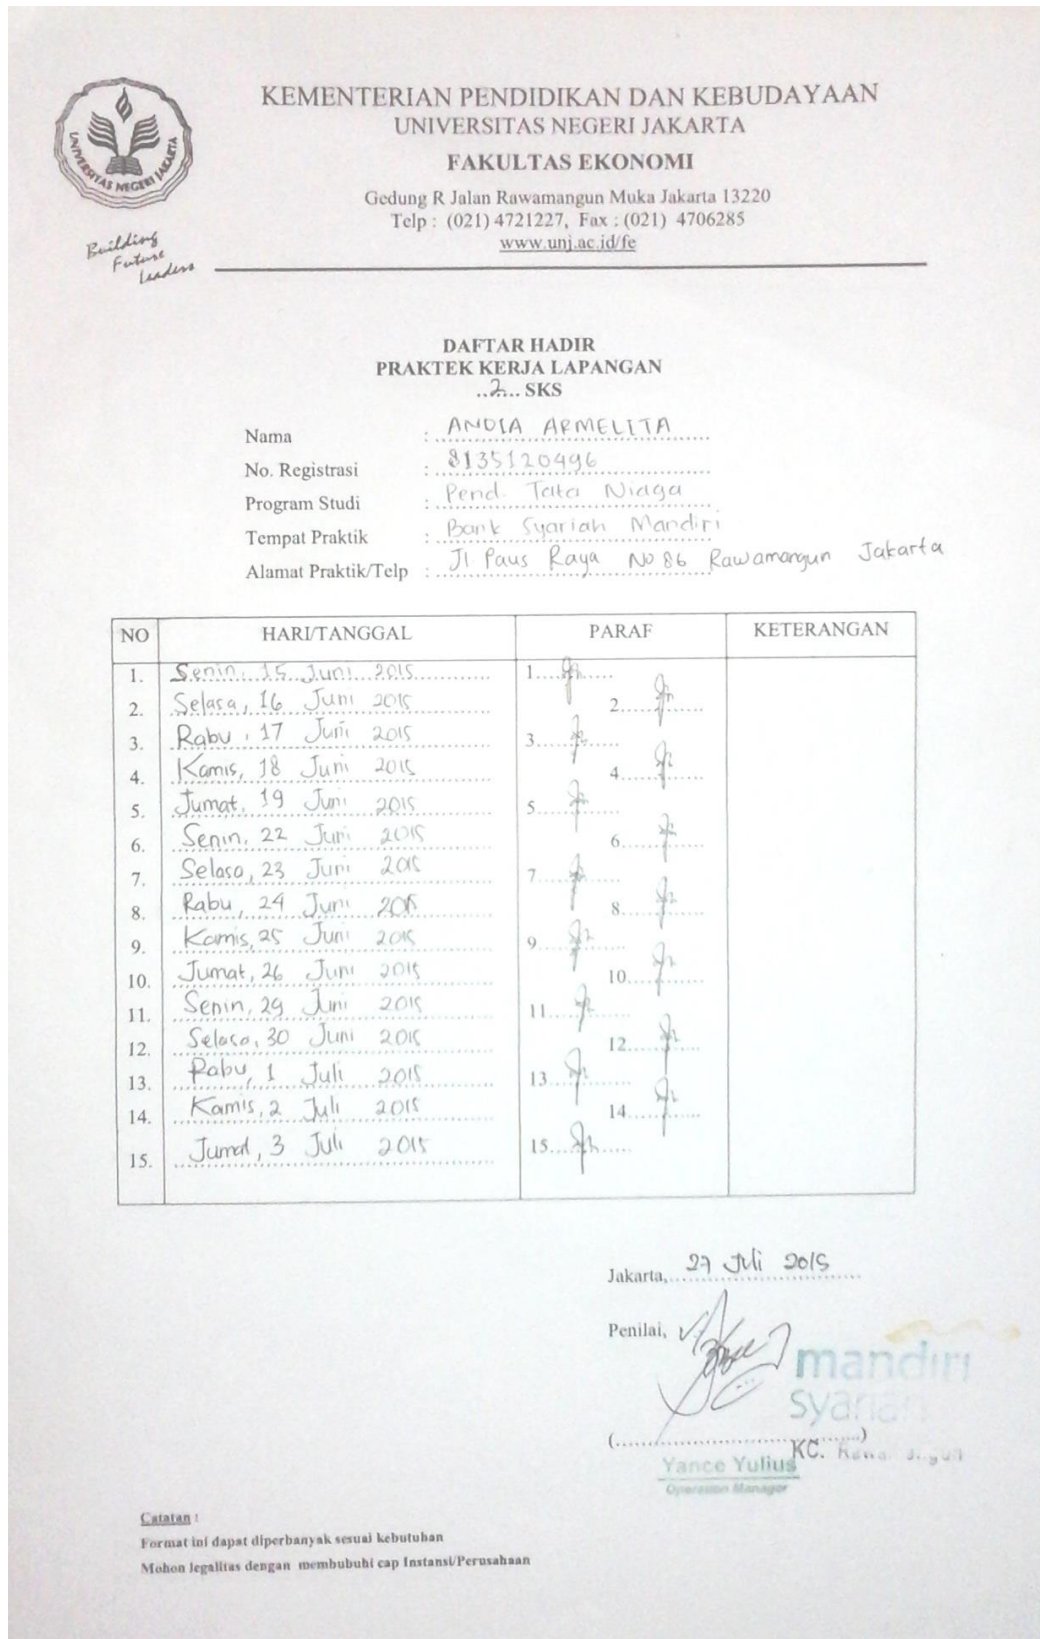 KEMENTERIAN PENDIDIKAN DAN KEBUDAYAAN
UNIVERSITAS NEGERI JAKARTA
FAKULTAS EKONOMI
Gedung R Jalan Rawamangun Muka Jakarta 13220
Telp : (021) 4721227, Fax : (021) 4706285
www.unj.ac.id/fe
UNIVERSITAS NEGERI JAKARTA
Building
Future
Leaders
DAFTAR HADIR
PRAKTEK KERJA LAPANGAN
..2... SKS
Nama : ANDIA ARMELITA
No. Registrasi : 8135120496
Program Studi : Pend. Tata Niaga
Tempat Praktik : Bank Syariah Mandiri
Alamat Praktik/Telp : Jl Paus Raya No 86 Rawamangun Jakarta
NO HARI/TANGGAL PARAF KETERANGAN
1. Senin, 15 Juni 2015 1.
2. Selasa, 16 Juni 2015 2.
3. Rabu, 17 Juni 2015 3.
4. Kamis, 18 Juni 2015 4.
5. Jumat, 19 Juni 2015 5.
6. Senin, 22 Juni 2015 6.
7. Selasa, 23 Juni 2015 7.
8. Rabu, 24 Juni 2015 8.
9. Kamis, 25 Juni 2015 9.
10. Jumat, 26 Juni 2015 10.
11. Senin, 29 Juni 2015 11.
12. Selasa, 30 Juni 2015 12.
13. Rabu, 1 Juli 2015 13.
14. Kamis, 2 Juli 2015 14.
15. Jumat, 3 Juli 2015 15.
Jakarta, 27 Juli 2015
Penilai,
mandiri
syariah
(..........................................)
KC.
Yance Yulius
Operation Manager
Catatan :
Format ini dapat diperbanyak sesuai kebutuhan
Mohon legalitas dengan membubuhi cap Instansi/Perusahaan